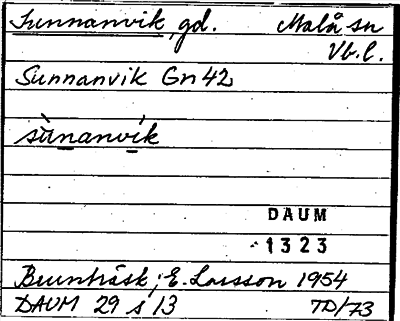 Sunnanvik, gd. Malå sn
Vb. l.
Sunnanvik Gn 42
sùnanvík
DAUM
1323
Brunträsk; E. Larsson 1954
DAUM 29 s 13 TD/73